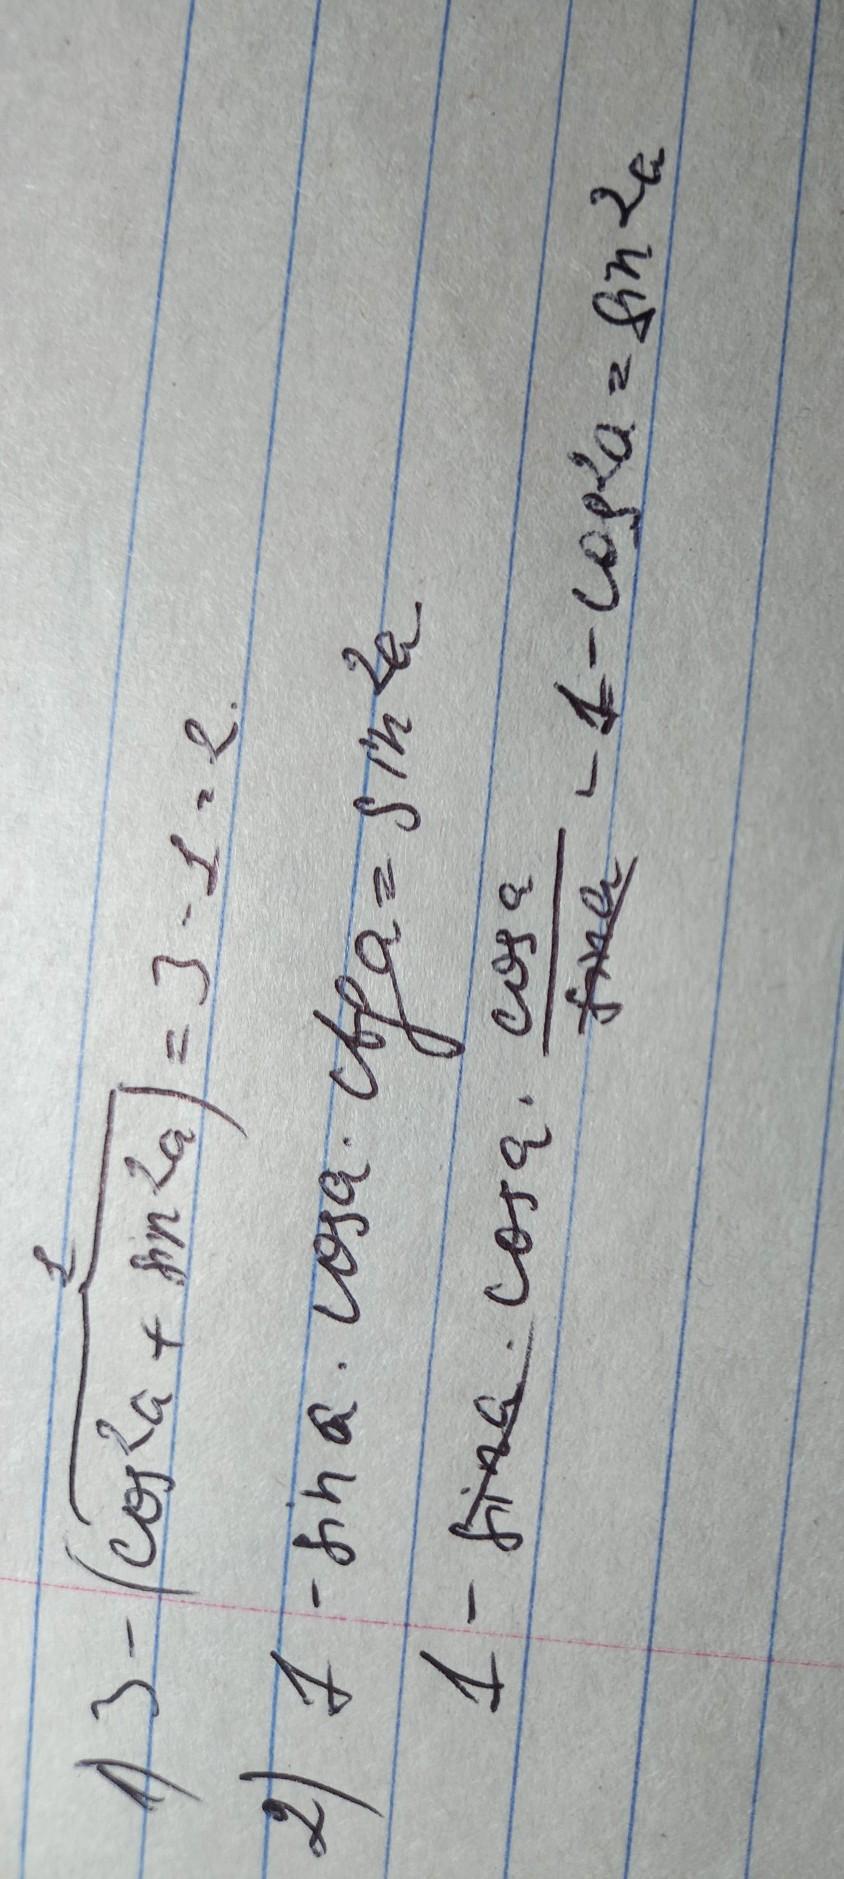 1
1) 3 - (cos²a + sin²a) = 3 - 1 = 2.
2) 1 - sin a · cos a · ctg a = sin²a
1 - sin a · cos a · cos a / sin a - 1 - cos²a = sin²a